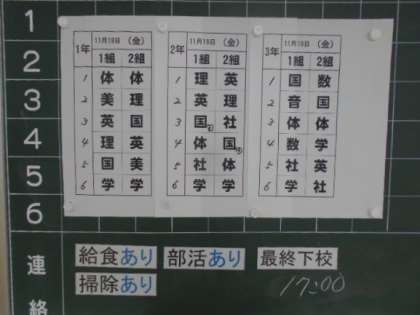 1
2
3
4
5
6
連絡
1年 11月18日 (金)
1組 2組
1 体 体
2 美 理
3 英 国
4 理 英
5 国 美
6 学 学
2年 11月18日 (金)
1組 2組
1 理 英
2 英 理
3 国 社
4 体 国
5 社 体
6 学 学
3年 11月18日 (金)
1組 2組
1 国 数
2 音 国
3 体 体
4 数 学
5 社 英
6 学 社
給食あり 部活あり 最終下校
掃除あり 17:00